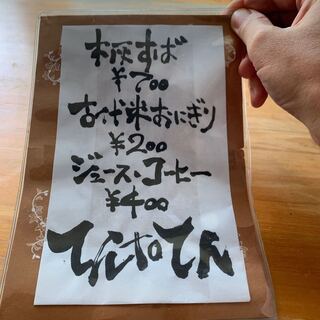 木灰すば
￥700
古代米おにぎり
￥200
ジュース・コーヒー
￥400
てんtoてん